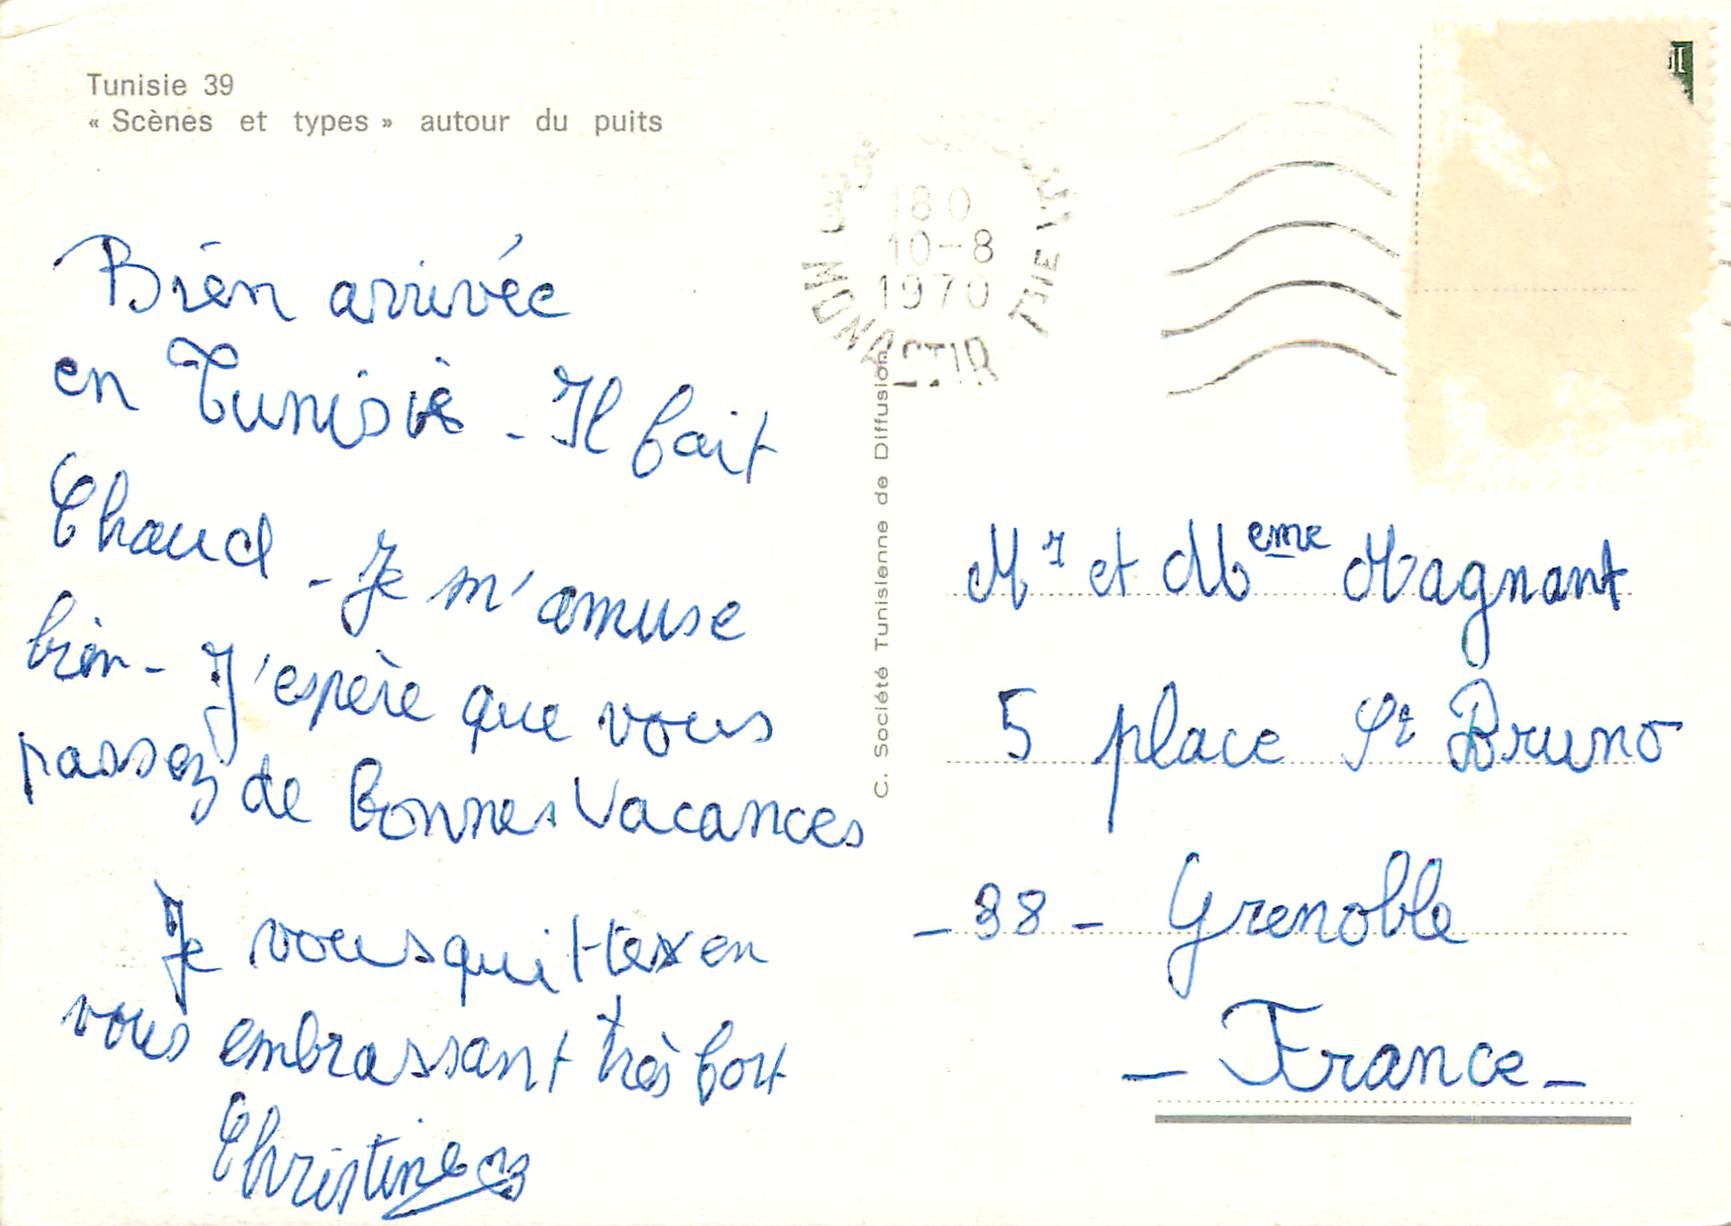 Tunisie 39
« Scènes et types » autour du puits
180
10-8
1970
MONASTIR
Bien arrivée
en Tunisie - Il fait
Chaud - Je m'amuse
bien - J'espère que vous
passez de Bonnes Vacances
Je vous quitte en
vous embrassant très fort
Christine
C. Société Tunisienne de Diffusion
Mr et Meme Magnant
5 place St Bruno
- 38 - Grenoble
- France -